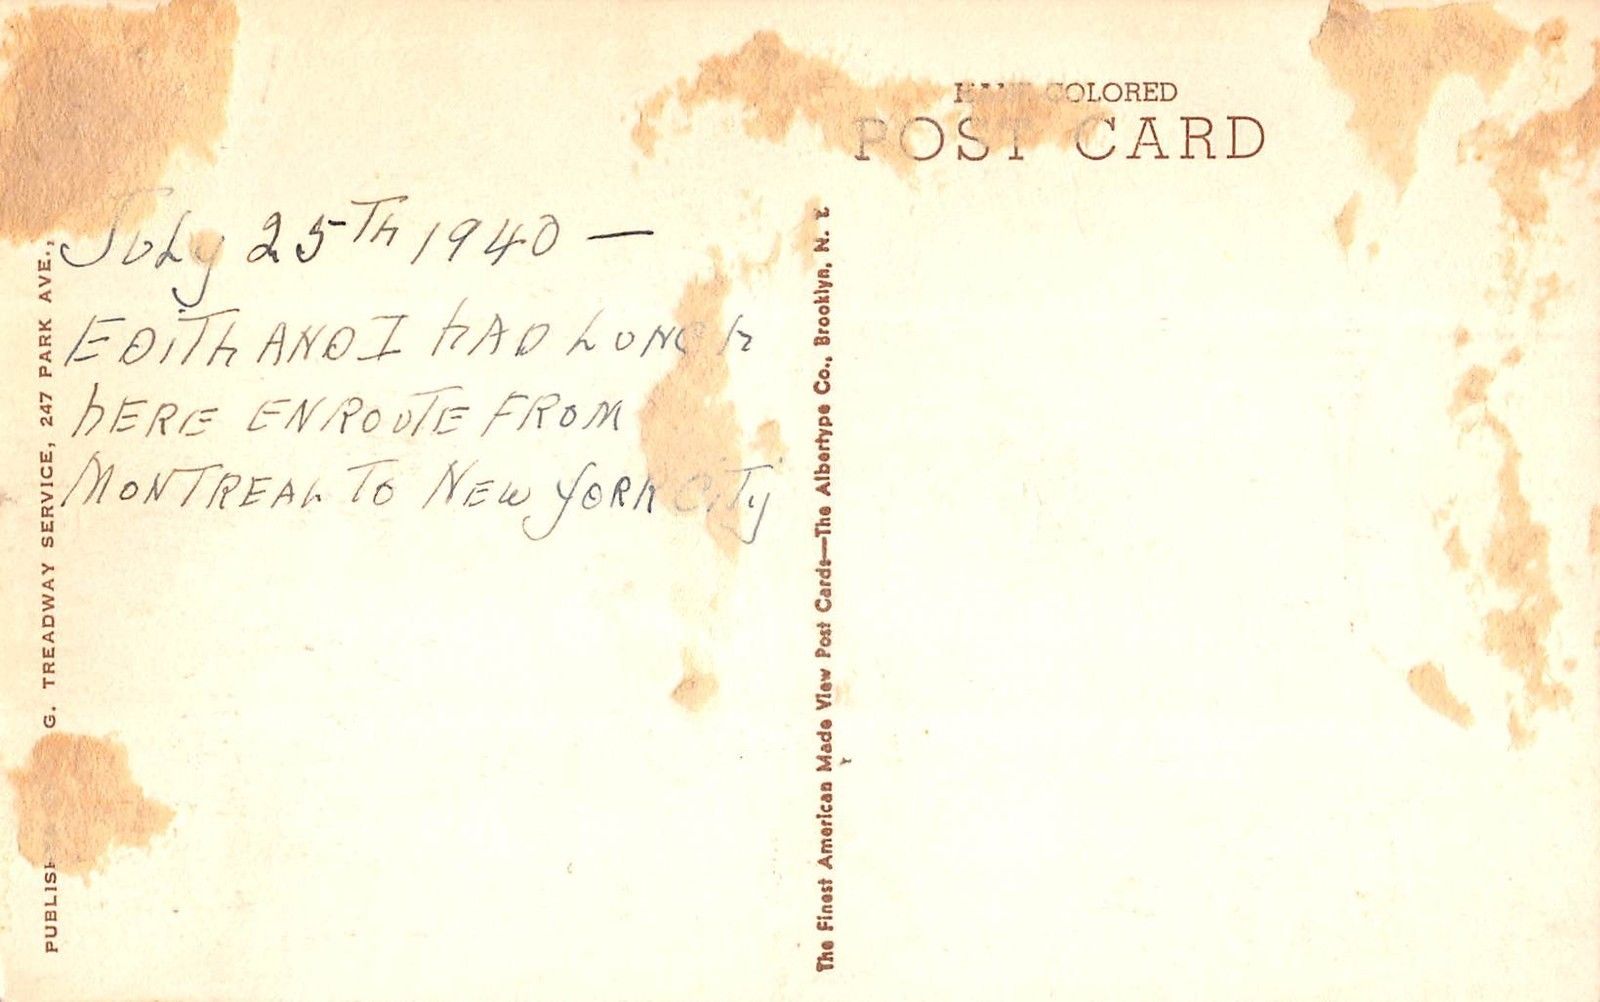 COLORED
POST CARD
July 25TH 1940 —
EDITH AND I HAD LUNCH
HERE ENROUTE FROM
MONTREAL TO NEW YORK CITY
G. TREADWAY SERVICE, 247 PARK AVE.,
The Finest American Made View Post Cards—The Albertype Co., Brooklyn, N. Y.